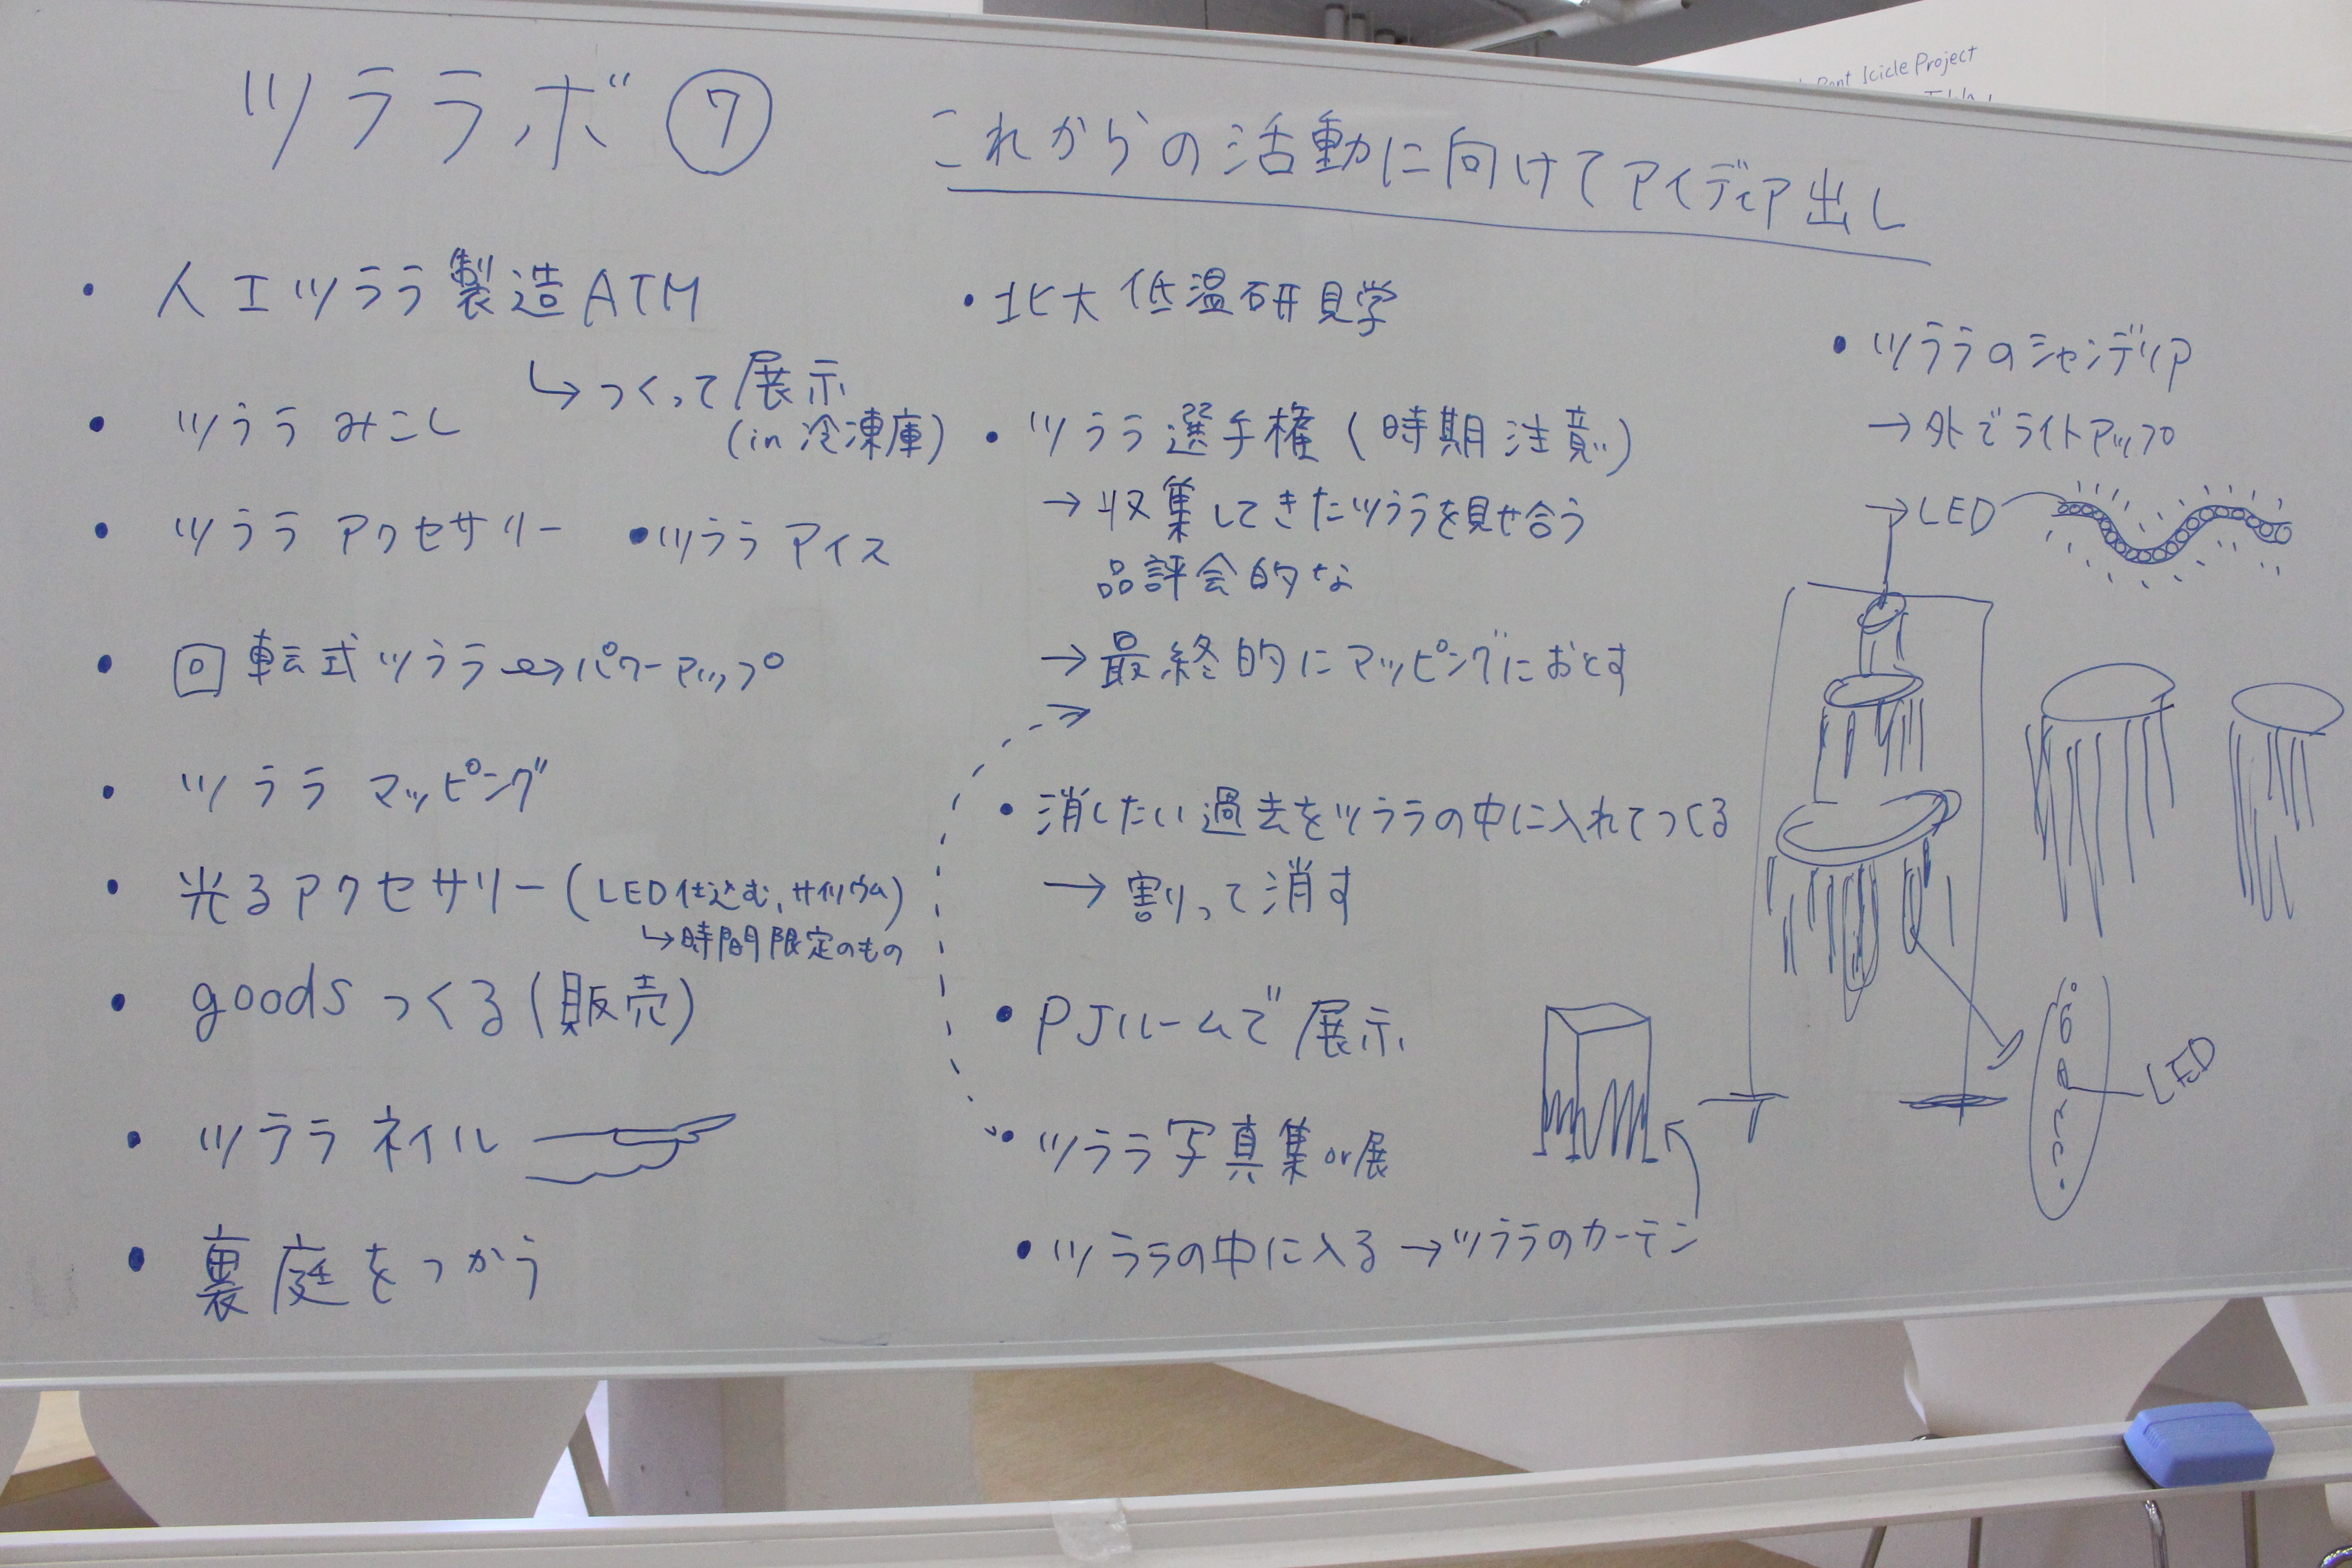 ツララボ ⑦
これからの活動に向けてアイディア出し
・人工ツララ製造ATM
↳つくって展示
(in 冷凍庫)
・ツララみこし
・ツララ アクセサリー
・ツララ アイス
・回転式ツララ→パワーアップ
・ツララ マッピング
・光るアクセサリー(LED仕込む、サイリウム)
↳時間限定のもの
・goods つくる(販売)
・ツララ ネイル
・裏庭をつかう
・北大 低温研見学
・ツララ選手権(時期注意)
→収集してきたツララを見せ合う
品評会的な
→最終的にマッピングにおとす
・消したい過去をツララの中に入れてつくる
→割って消す
・PJルームで展示
・ツララ写真集or展
・ツララの中に入る→ツララのカーテン
・ツララのシャンデリア
→外でライトアップ
→LED
LED
Icicle Project